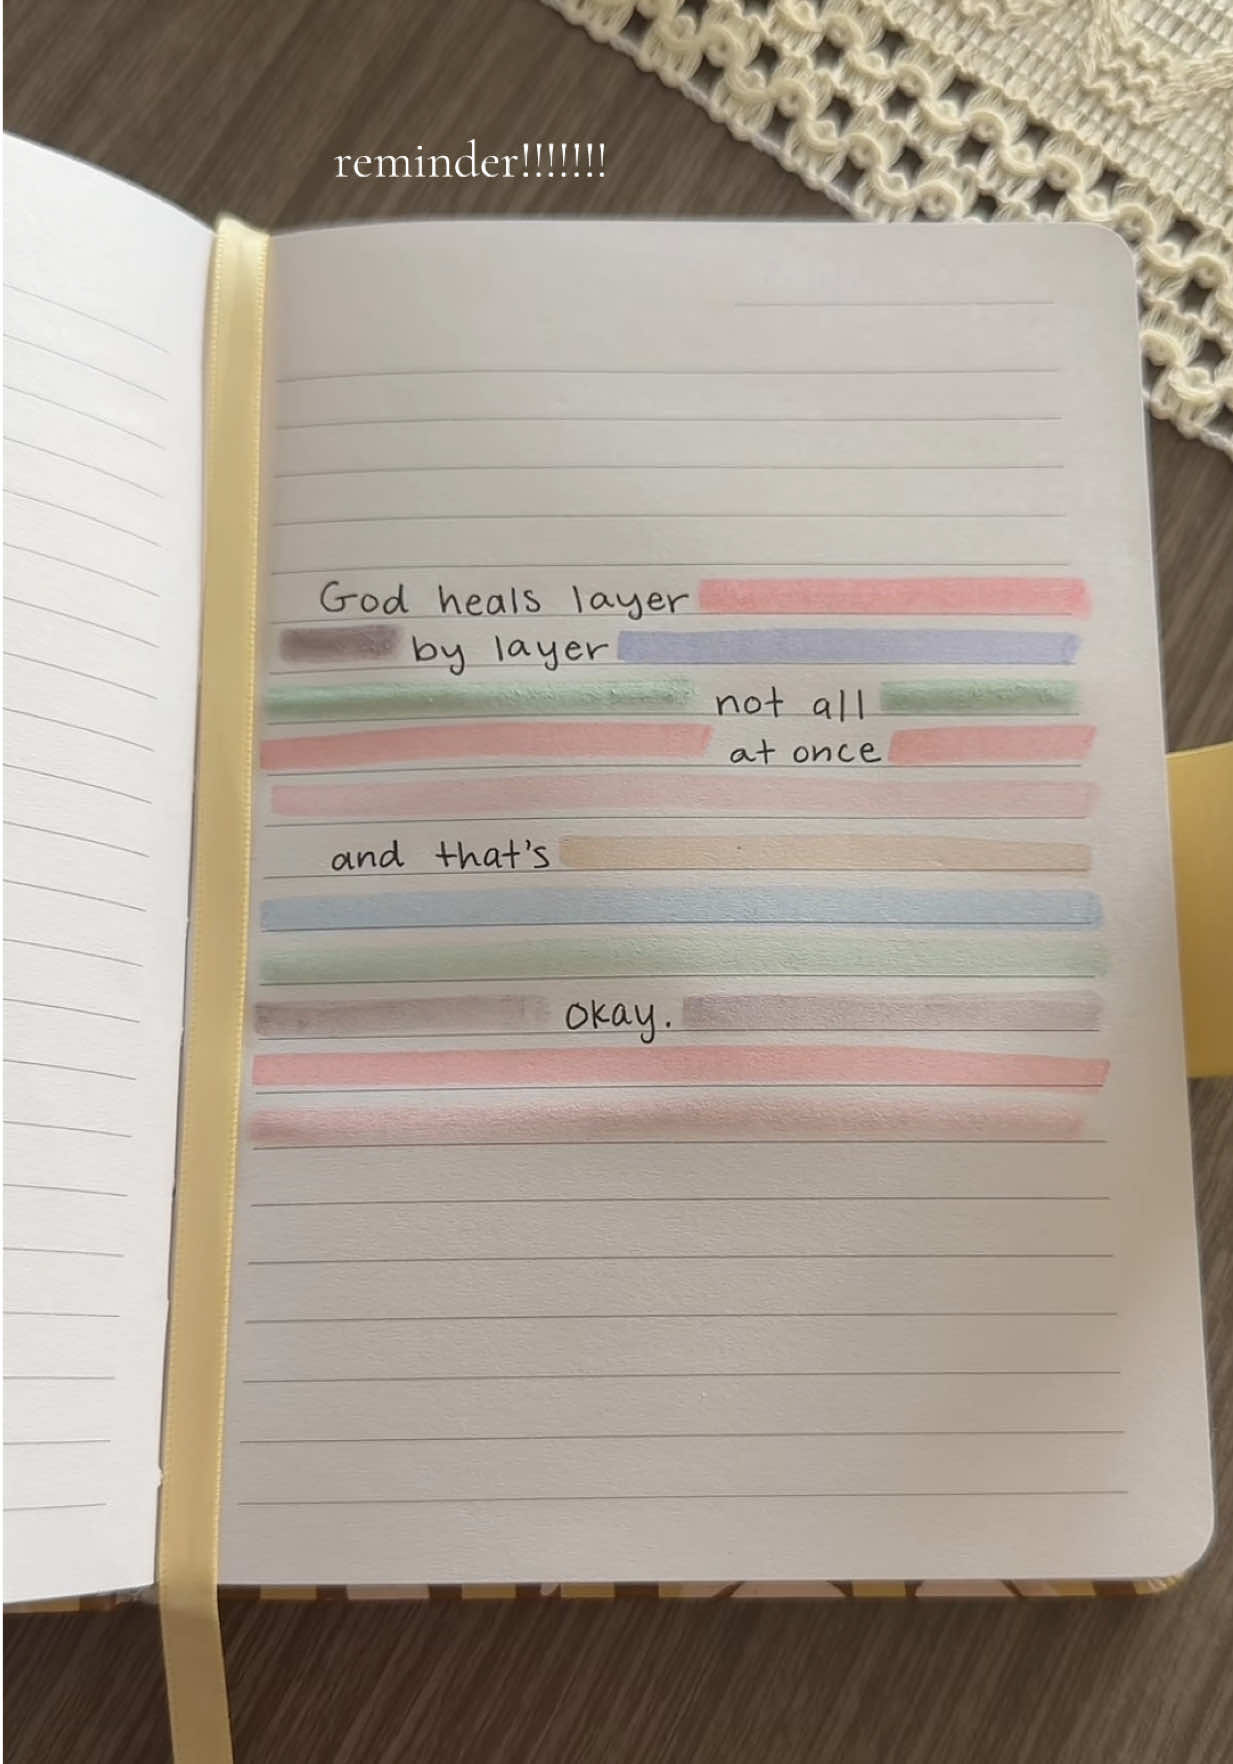 reminder!!!!!!!
God heals layer
by layer
not all
at once
and that's
okay.